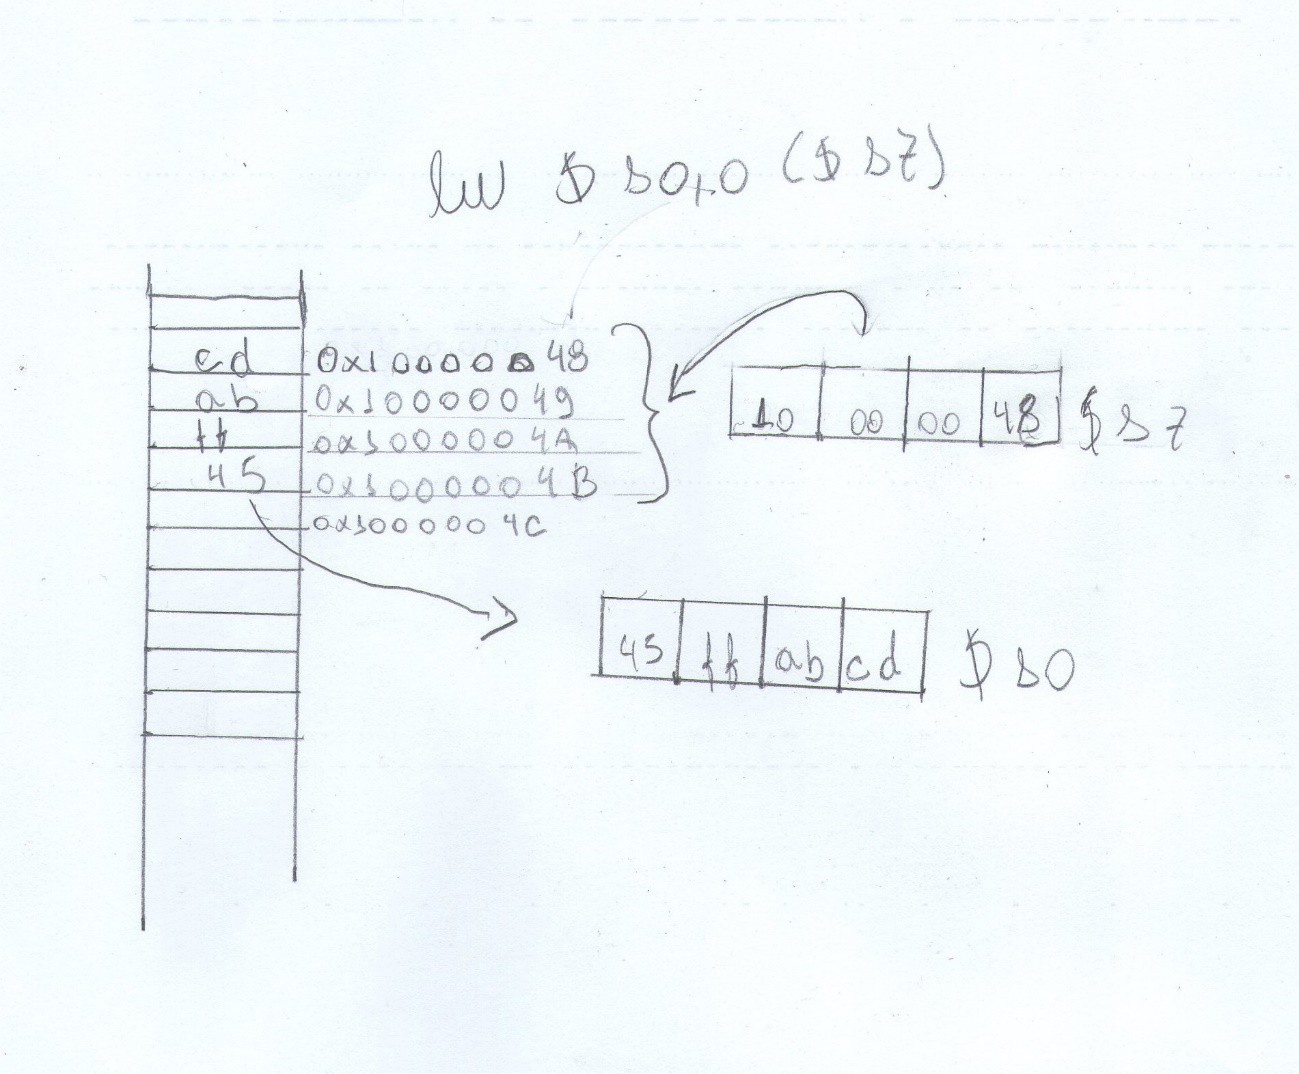 lw $s0,0($s7)
cd 0x10000048
ab 0x10000049
ff 0x1000004A
45 0x1000004B
0x1000004C
10 00 00 48 $s7
45 ff ab cd $s0